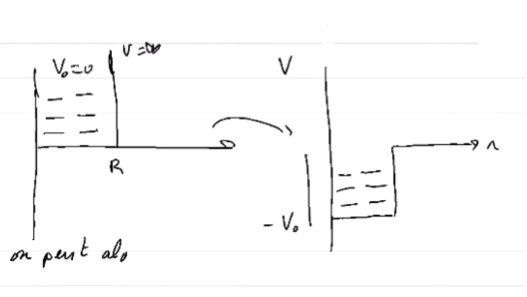 V₀=0
V=∞
V
R
r
-V₀
on peut alo